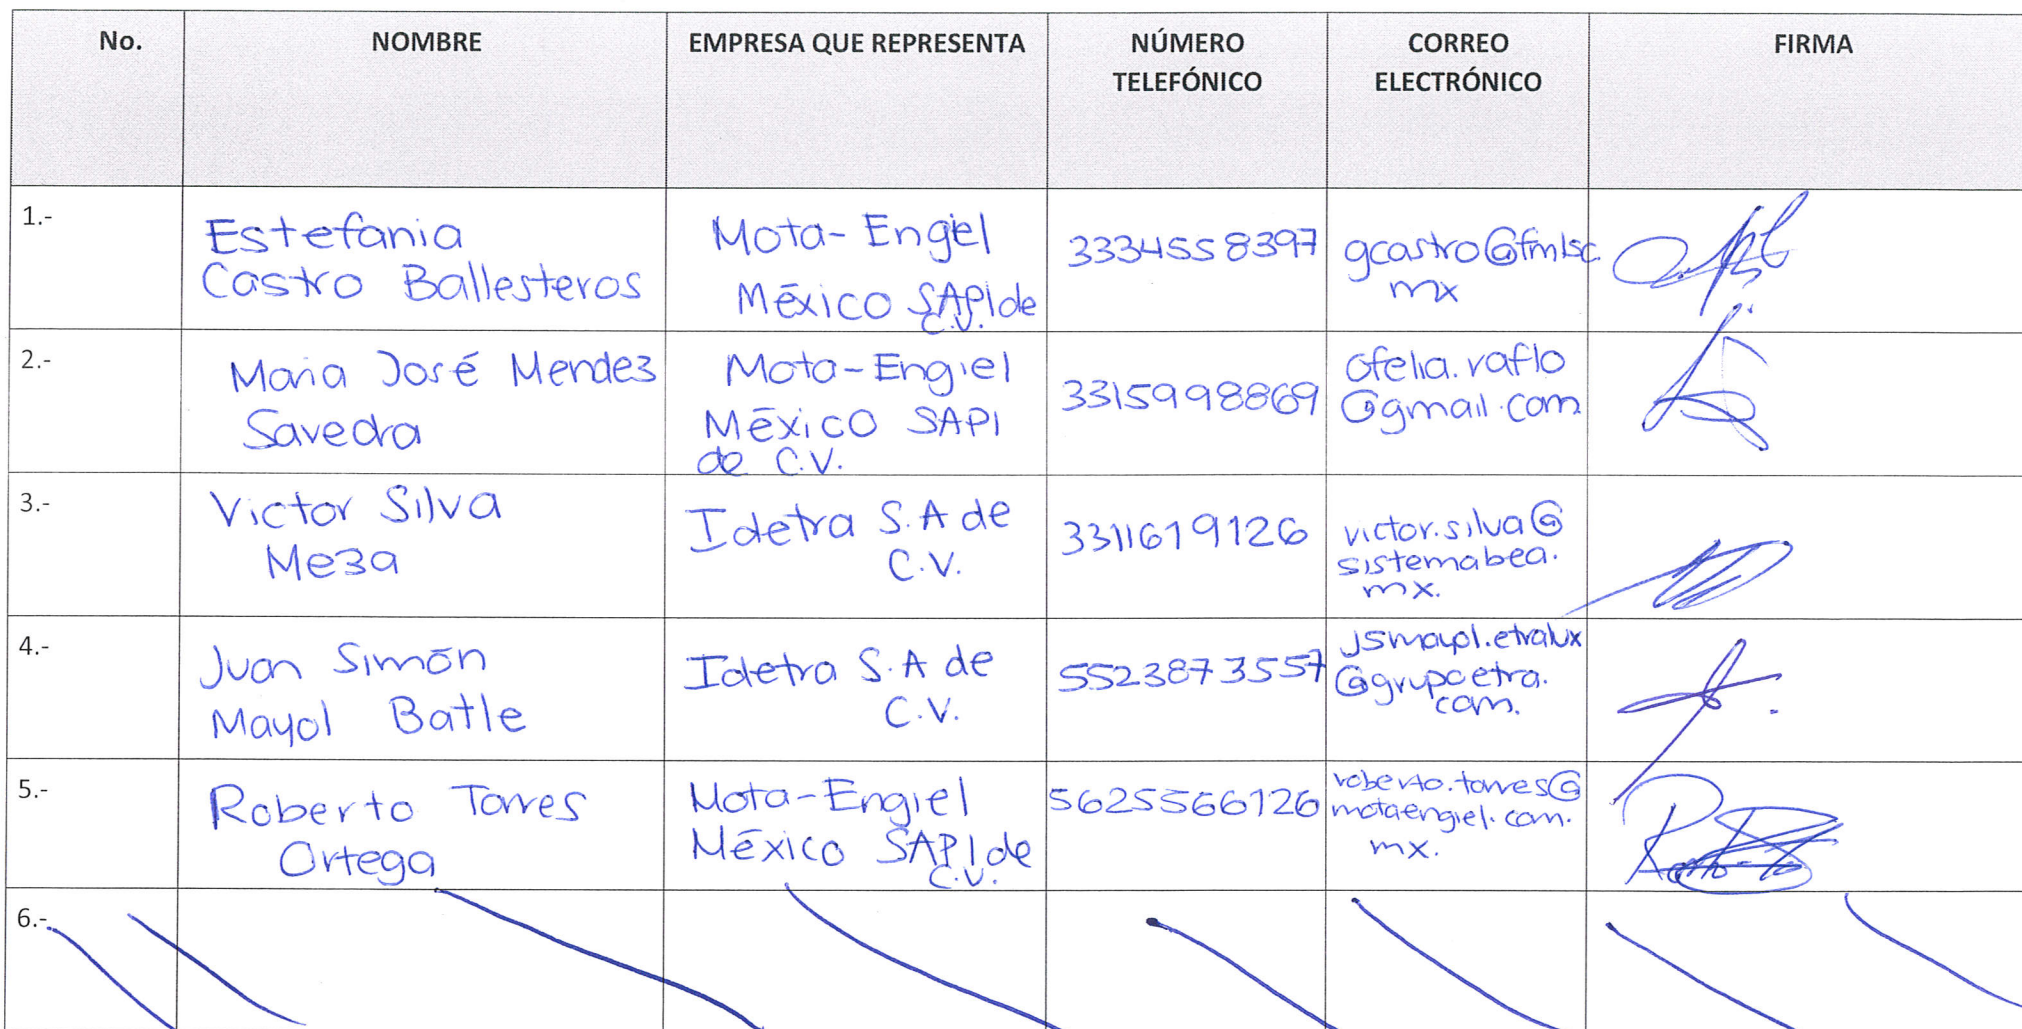 No. NOMBRE EMPRESA QUE REPRESENTA NÚMERO TELEFÓNICO CORREO ELECTRÓNICO FIRMA
1.-
Estefania
Castro Ballesteros
Mota-Engel
México SAPI de
C.V.
3334558397
gcastro@fmlsc.
mx
2.-
Maria José Mendez
Savedra
Mota-Engiel
México SAPI
de C.V.
3315998869
ofelia.raflo
@gmail.com
3.-
Victor Silva
Meza
Idetra S.A de
C.V.
3311619126
victor.silva@
sistemabea.
mx.
4.-
Juan Simón
Mayol Batle
Idetra S.A de
C.V.
5523873557
jsmayol.etralux
@grupoetra.
com.
5.-
Roberto Torres
Ortega
Mota-Engiel
México SAPI de
C.V.
5625566126
roberto.torres@
motaengiel.com.
mx.
6.-